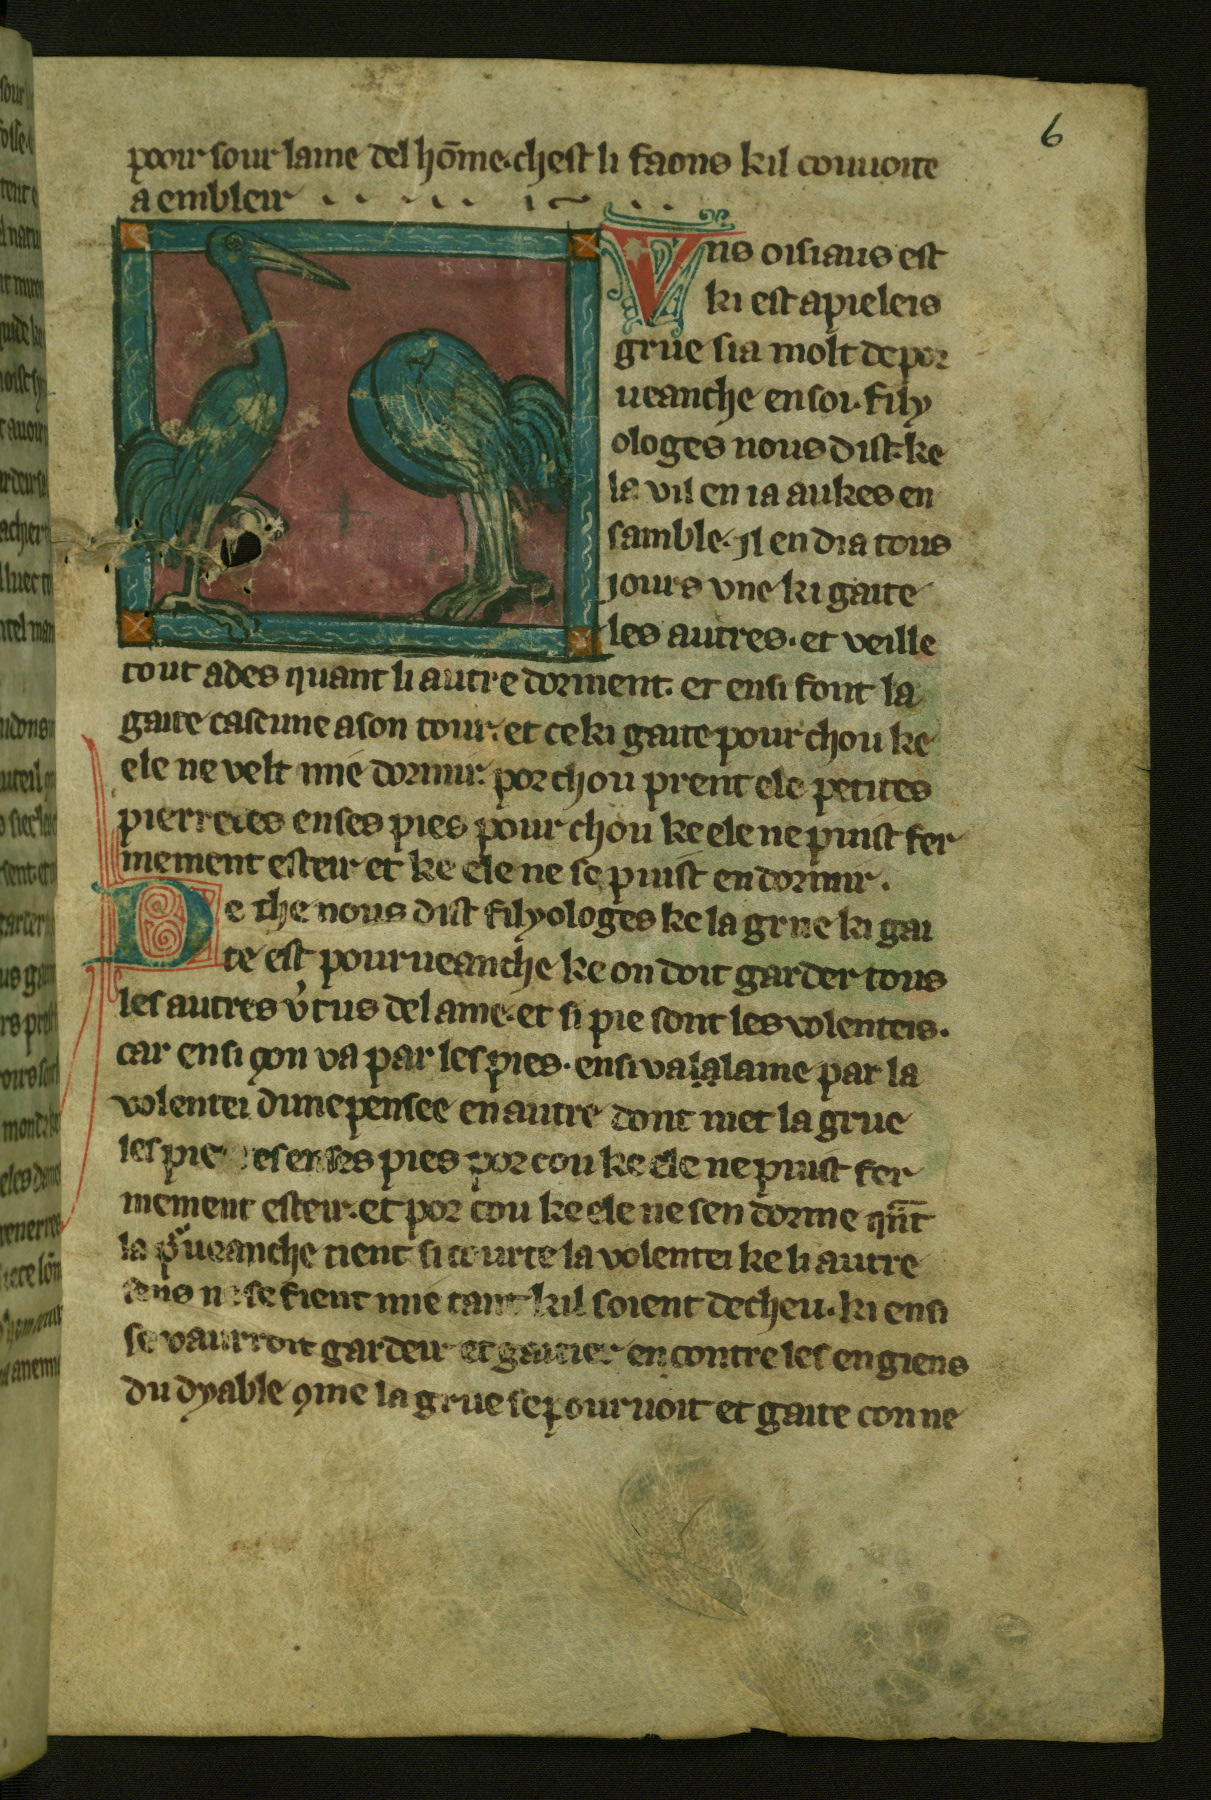 6
pooir sour lame del hōme. chest li faons kil couuoite
a embleir
Vns oisiaus est
ki est apieleis
grue si a molt de por
ueanche en soi. fily
ologes nous dist. ke
la v il en i a aukes en
samble. Il en di a tous
jours vne ki gaite
les autres. et veille
tout ades quant li autre dorment. et ensi font la
gaite cascune a son tour. et ce ki gaite pour chou ke
ele ne velt mie dormir. por chou prent ele petites
pierretes en ses pies pour chou ke ele ne puist fer
mement esteir et ke ele ne se puist endormir.
De che nous dist filyologes ke la grue ki gai
te est pourueanche ke on doit garder tous
les autres v̾tus del ame. et si pie sont les volenteis.
car ensi ꝯon va par les pies. ensi va la lame par la
volentei dune pensee en autre dont met la grue
les en ses pies por cou ke ele ne puist fer
mement esteir. et por cou ke ele ne sen dorme qn̄t
la p̾ueanche tient si courte la volentei ke li autre
sens ne se fient mie tant kil soient decheu. ki ensi
se vaurroit gardeir et gaitier encontre les engiens
du dyable ꝯme la grue se pouruoit et gaite con ne